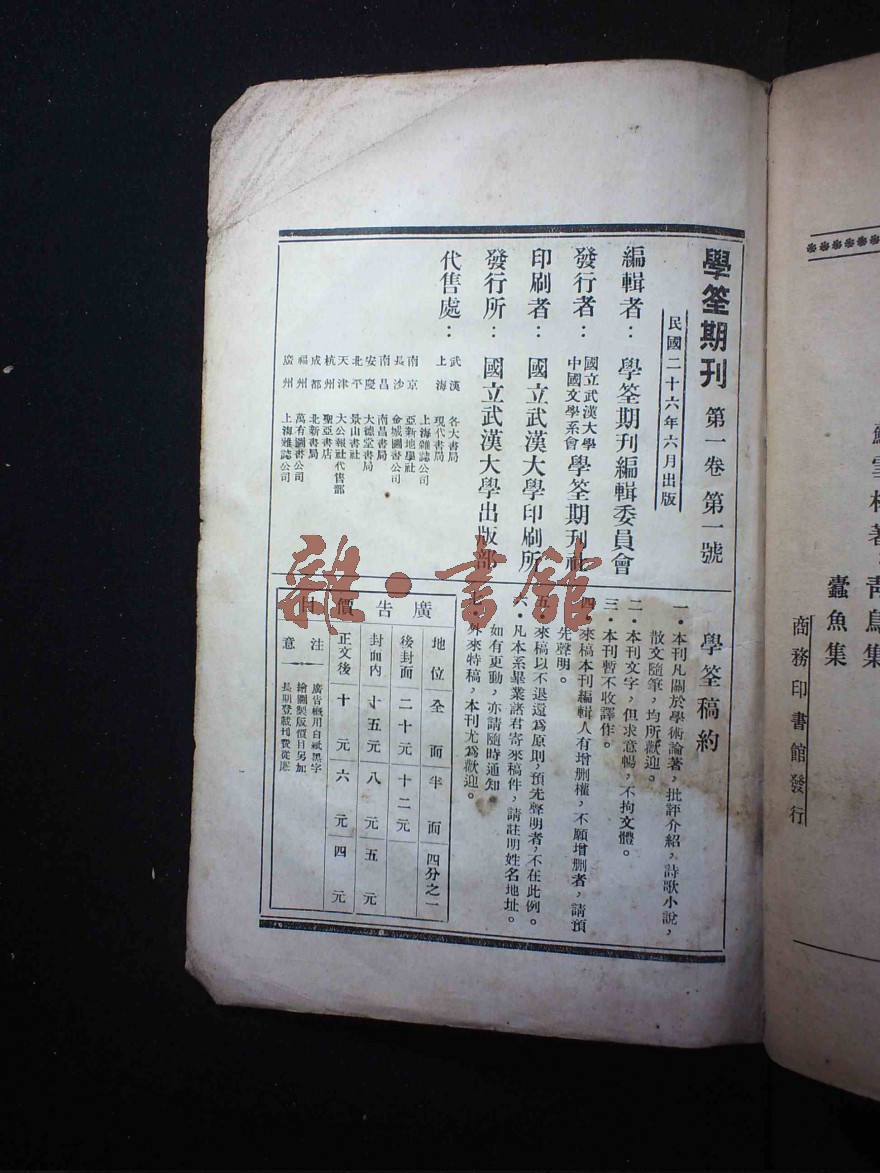 學筌期刊 第一卷 第一號
民國二十六年六月出版
編輯者：學筌期刊編輯委員會
發行者：國立武漢大學中國文學系會學筌期刊社
印刷者：國立武漢大學印刷所
發行所：國立武漢大學出版部
代售處：
武漢 各大書局
上海 現代書局
上海雜誌公司
南京 亞新地學社
長沙 金城圖書公司
南昌 南昌書局
安慶 大德堂書局
北平 景山書社
天津 大公報社代售部
杭州 聖亞書店
成都 北新書局
福州 萬有圖書公司
廣州 上海雜誌公司
學筌稿約
一．本刊凡關於學術論著，批評介紹，詩歌小說，
散文隨筆，均所歡迎。
二．本刊文字，但求意暢，不拘文體。
三．本刊暫不收譯作。
四．來稿本刊編輯人有增删權，不願增删者，請預
先聲明。
五．來稿以不退還爲原則，預先聲明者，不在此例。
六．凡本系畢業諸君寄來稿件，請註明姓名地址。
如有更動，亦請隨時通知。
外來特稿，本刊尤爲歡迎。
廣告價目
地位 全面 半面 四分之一
後封面 二十元 十二元
封面內 十五元 八元 五元
正文後 十元 六元 四元
注意
廣告概用白紙黑字
繪圖製版價目另加
長期登載刊費從廉
雜·書館
青鳥集
蠹魚集
商務印書館發行